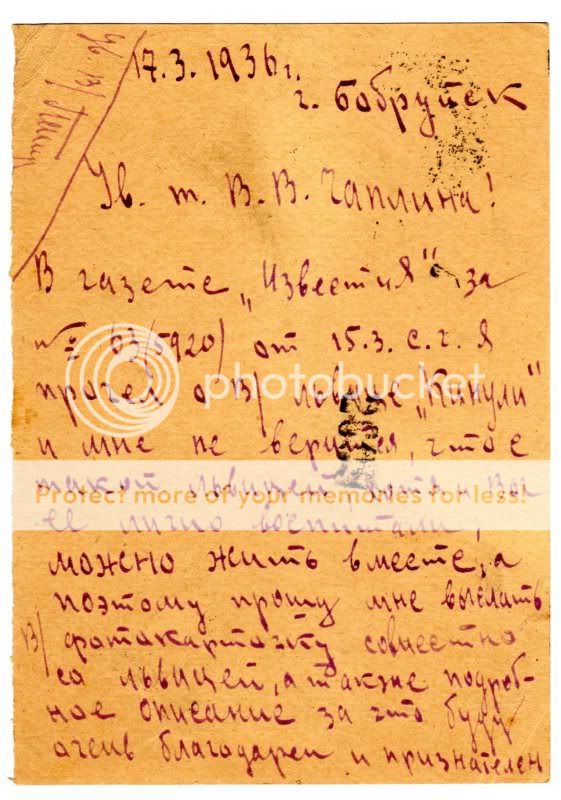 17.3.1936 г.
г. Бобруйск
Ув. т. В. В. Чаплина!
В газете „Известия“ за
№ 63/5920/ от 15.3. с.г. я
прочел о В/ львице „Кинули“
и мне не верится, что с
такой львицей, хотя и Вы
её лично воспитали,
можно жить вместе, а
поэтому прошу мне выслать
В/ фотокарточку совместно
со львицей, а также подроб-
ное описание за что буду
очень благодарен и признателен
photobucket
Protect more of your memories for less!